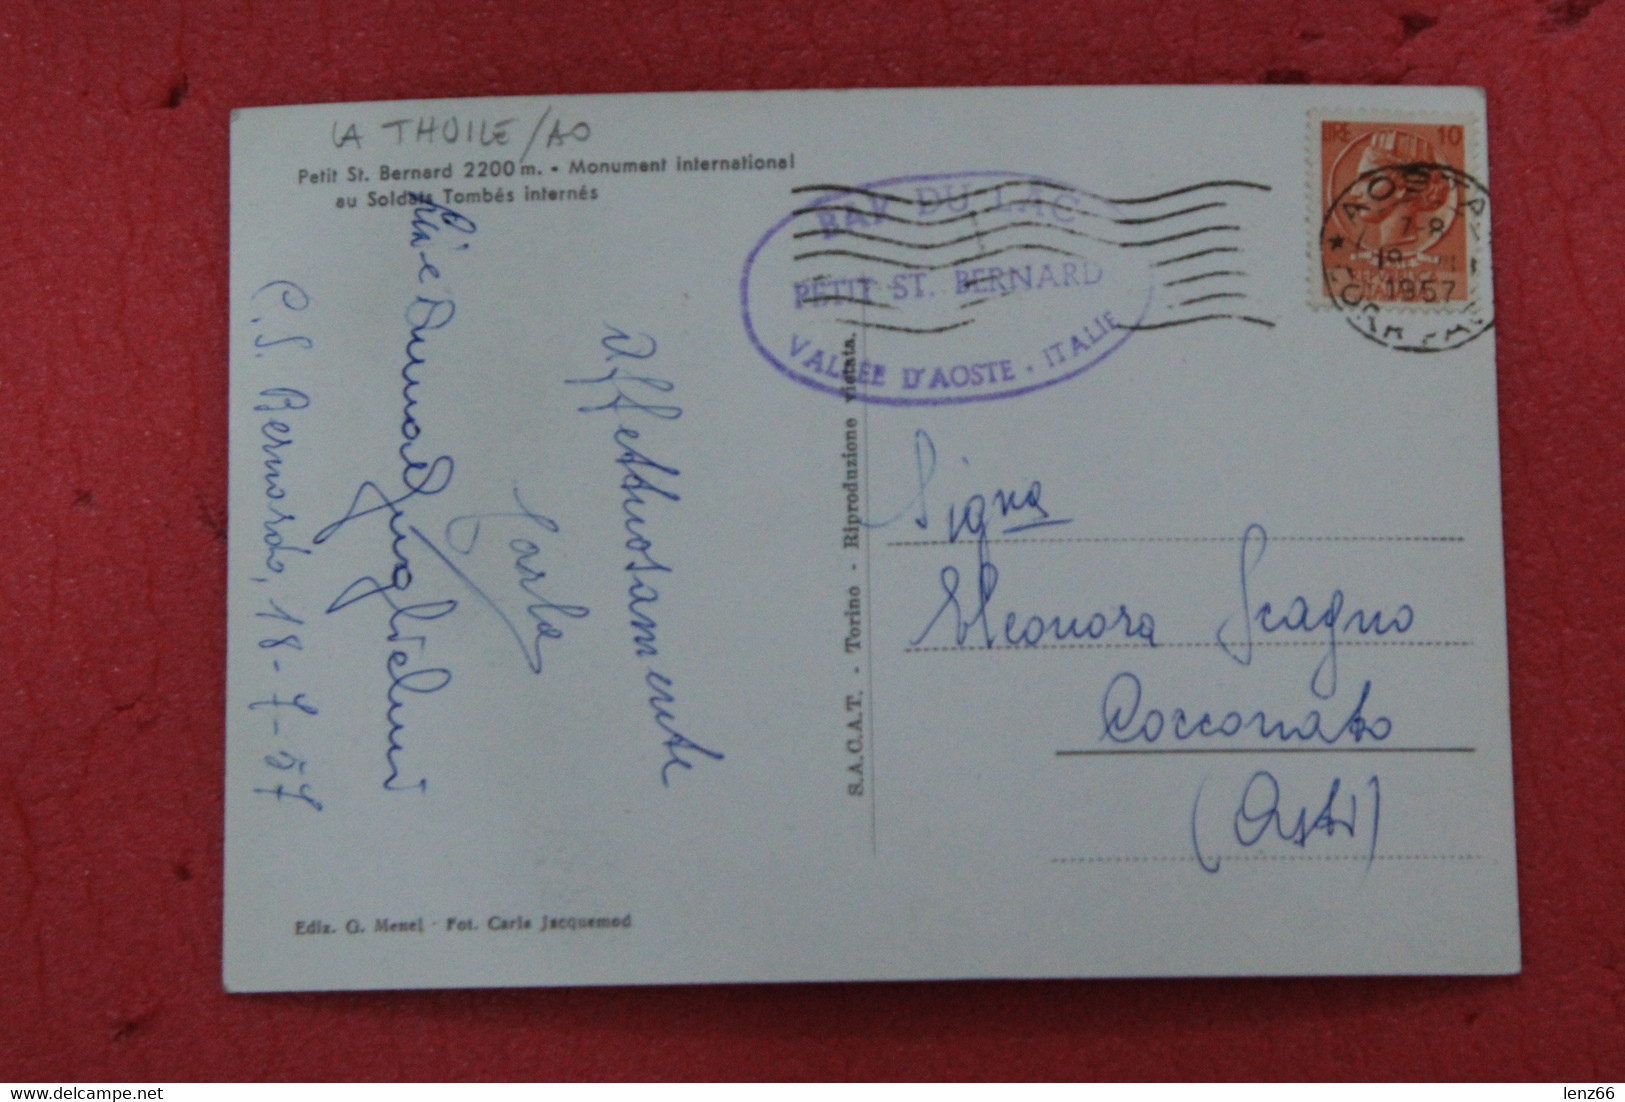 LA THUILE/AO
Petit St. Bernard 2200 m. - Monument international
au Soldats Tombés internés
BAR DU LAC
PETIT ST. BERNARD
VALLÉE D'AOSTE . ITALIE
LIRE 10
AOSTA
7-8
1957
P.S. Bernardo, 18-7-57
Guglielmi
Carla
Affettuosamente
S.A.C.A.T. - Torino - Riproduzione vietata.
Signa
Eleonora Scagno
Cocconato
(Asti)
Ediz. G. Menel - Fot. Carla Jacquemod
lenz66